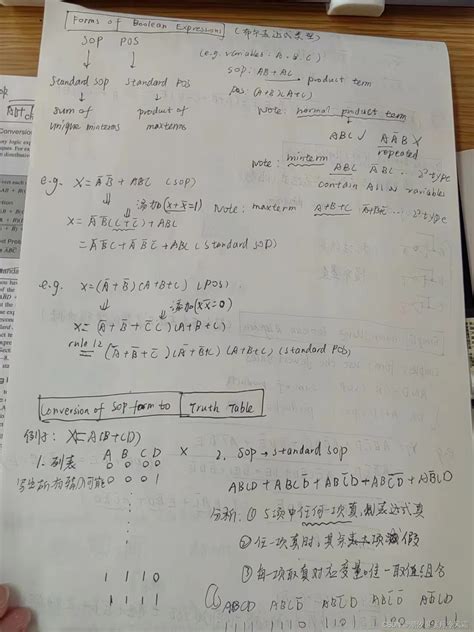 Forms of Boolean Expressions (布尔表达式类型)
SOP POS
(e.g. variables: A、B、C)
SOP: AB+AC → product term
POS: (A+B)(A+C)
Standard SOP Standard POS
Note: normal product term
sum of product of
unique minterms maxterms
ABC √ AĀB ×
repeated
Note: minterm ABC ĀBC ... 2³ type
contain All N variables
e.g. X = ĀB̄ + ABC (SOP)
添加(x+x̄=1)
Note: maxterm A+B+C Ā+B+C ... 2³ type
X = ĀB̄(C+C̄) + ABC
= ĀB̄C + ĀB̄C̄ + ABC (standard SOP)
e.g. X = (Ā+B̄)(A+B+C) (POS)
添加(xx̄=0)
X = (Ā+B̄+CC̄)(A+B+C)
rule 12
= (Ā+B̄+C̄)(Ā+B̄+C)(A+B+C) (standard POS)
Conversion of SOP form to Truth Table
X=A(B+CD)
1. 列表 A B C D X
0 0 0 0
0 0 0 1
1 1 1 0
1 1 1 1
2. SOP → standard SOP
ABCD + ABCD̄ + ABC̄D + ABC̄D̄ + AB̄CD
分析: ① 5项中任何一项真,则表达式真
②任一项真时,其余
③每一项取真对应变量唯一取值组合
ABCD ABCD̄ ABC̄D ABC̄D̄ AB̄CD
1111 1110 1101 1100 1011